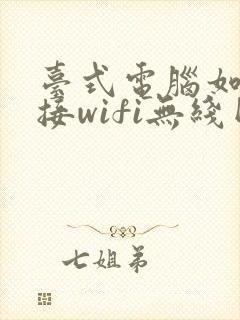 臺式電腦如
接wifi無綫
七姐弟